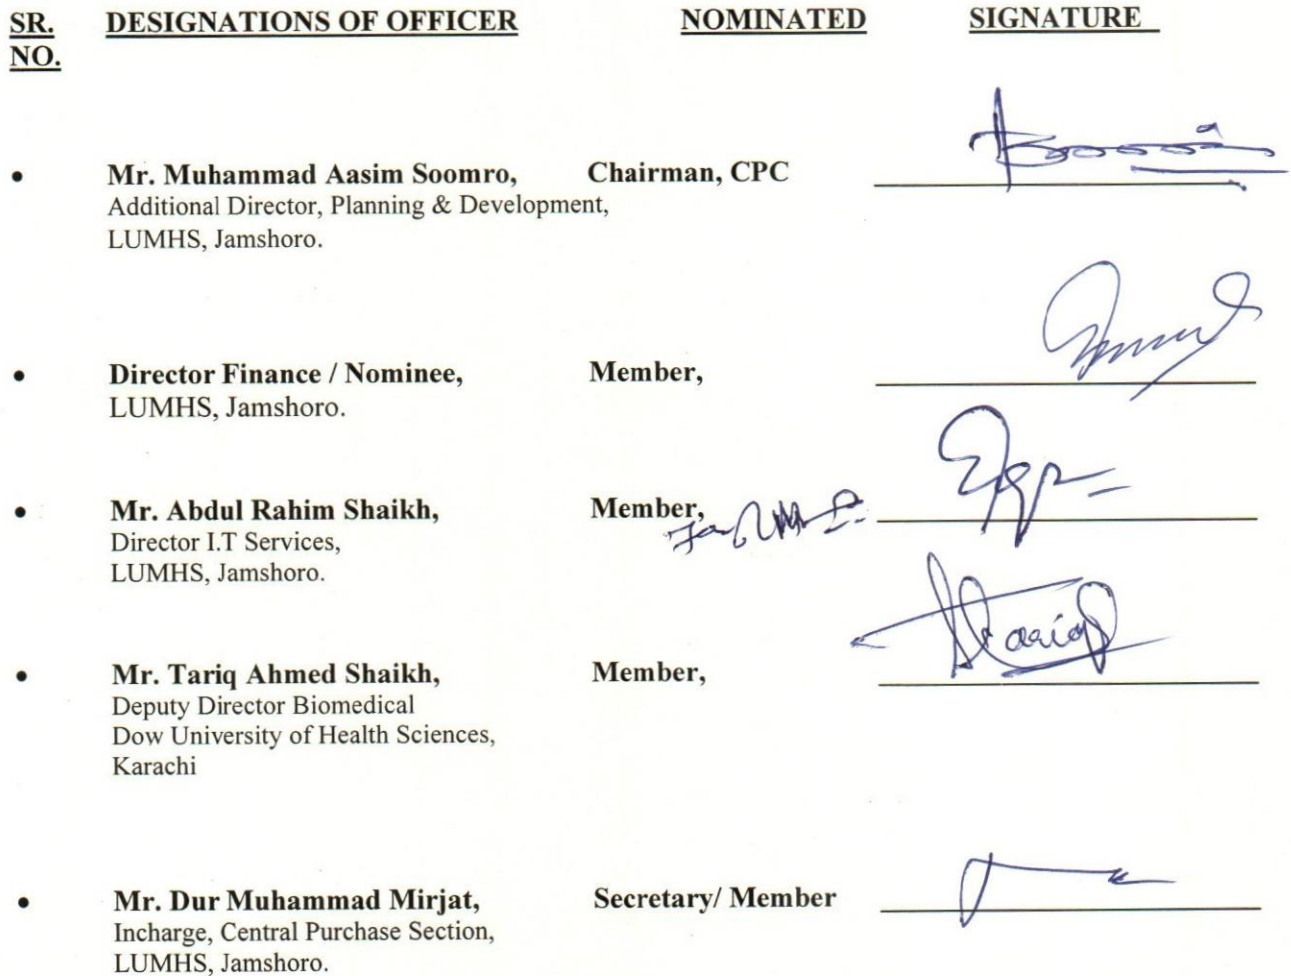 SR. DESIGNATIONS OF OFFICER NOMINATED SIGNATURE
NO.
• Mr. Muhammad Aasim Soomro, Chairman, CPC
Additional Director, Planning & Development,
LUMHS, Jamshoro.
• Director Finance / Nominee, Member,
LUMHS, Jamshoro.
• Mr. Abdul Rahim Shaikh, Member,
Director I.T Services,
LUMHS, Jamshoro.
• Mr. Tariq Ahmed Shaikh, Member,
Deputy Director Biomedical
Dow University of Health Sciences,
Karachi
• Mr. Dur Muhammad Mirjat, Secretary/ Member
Incharge, Central Purchase Section,
LUMHS, Jamshoro.